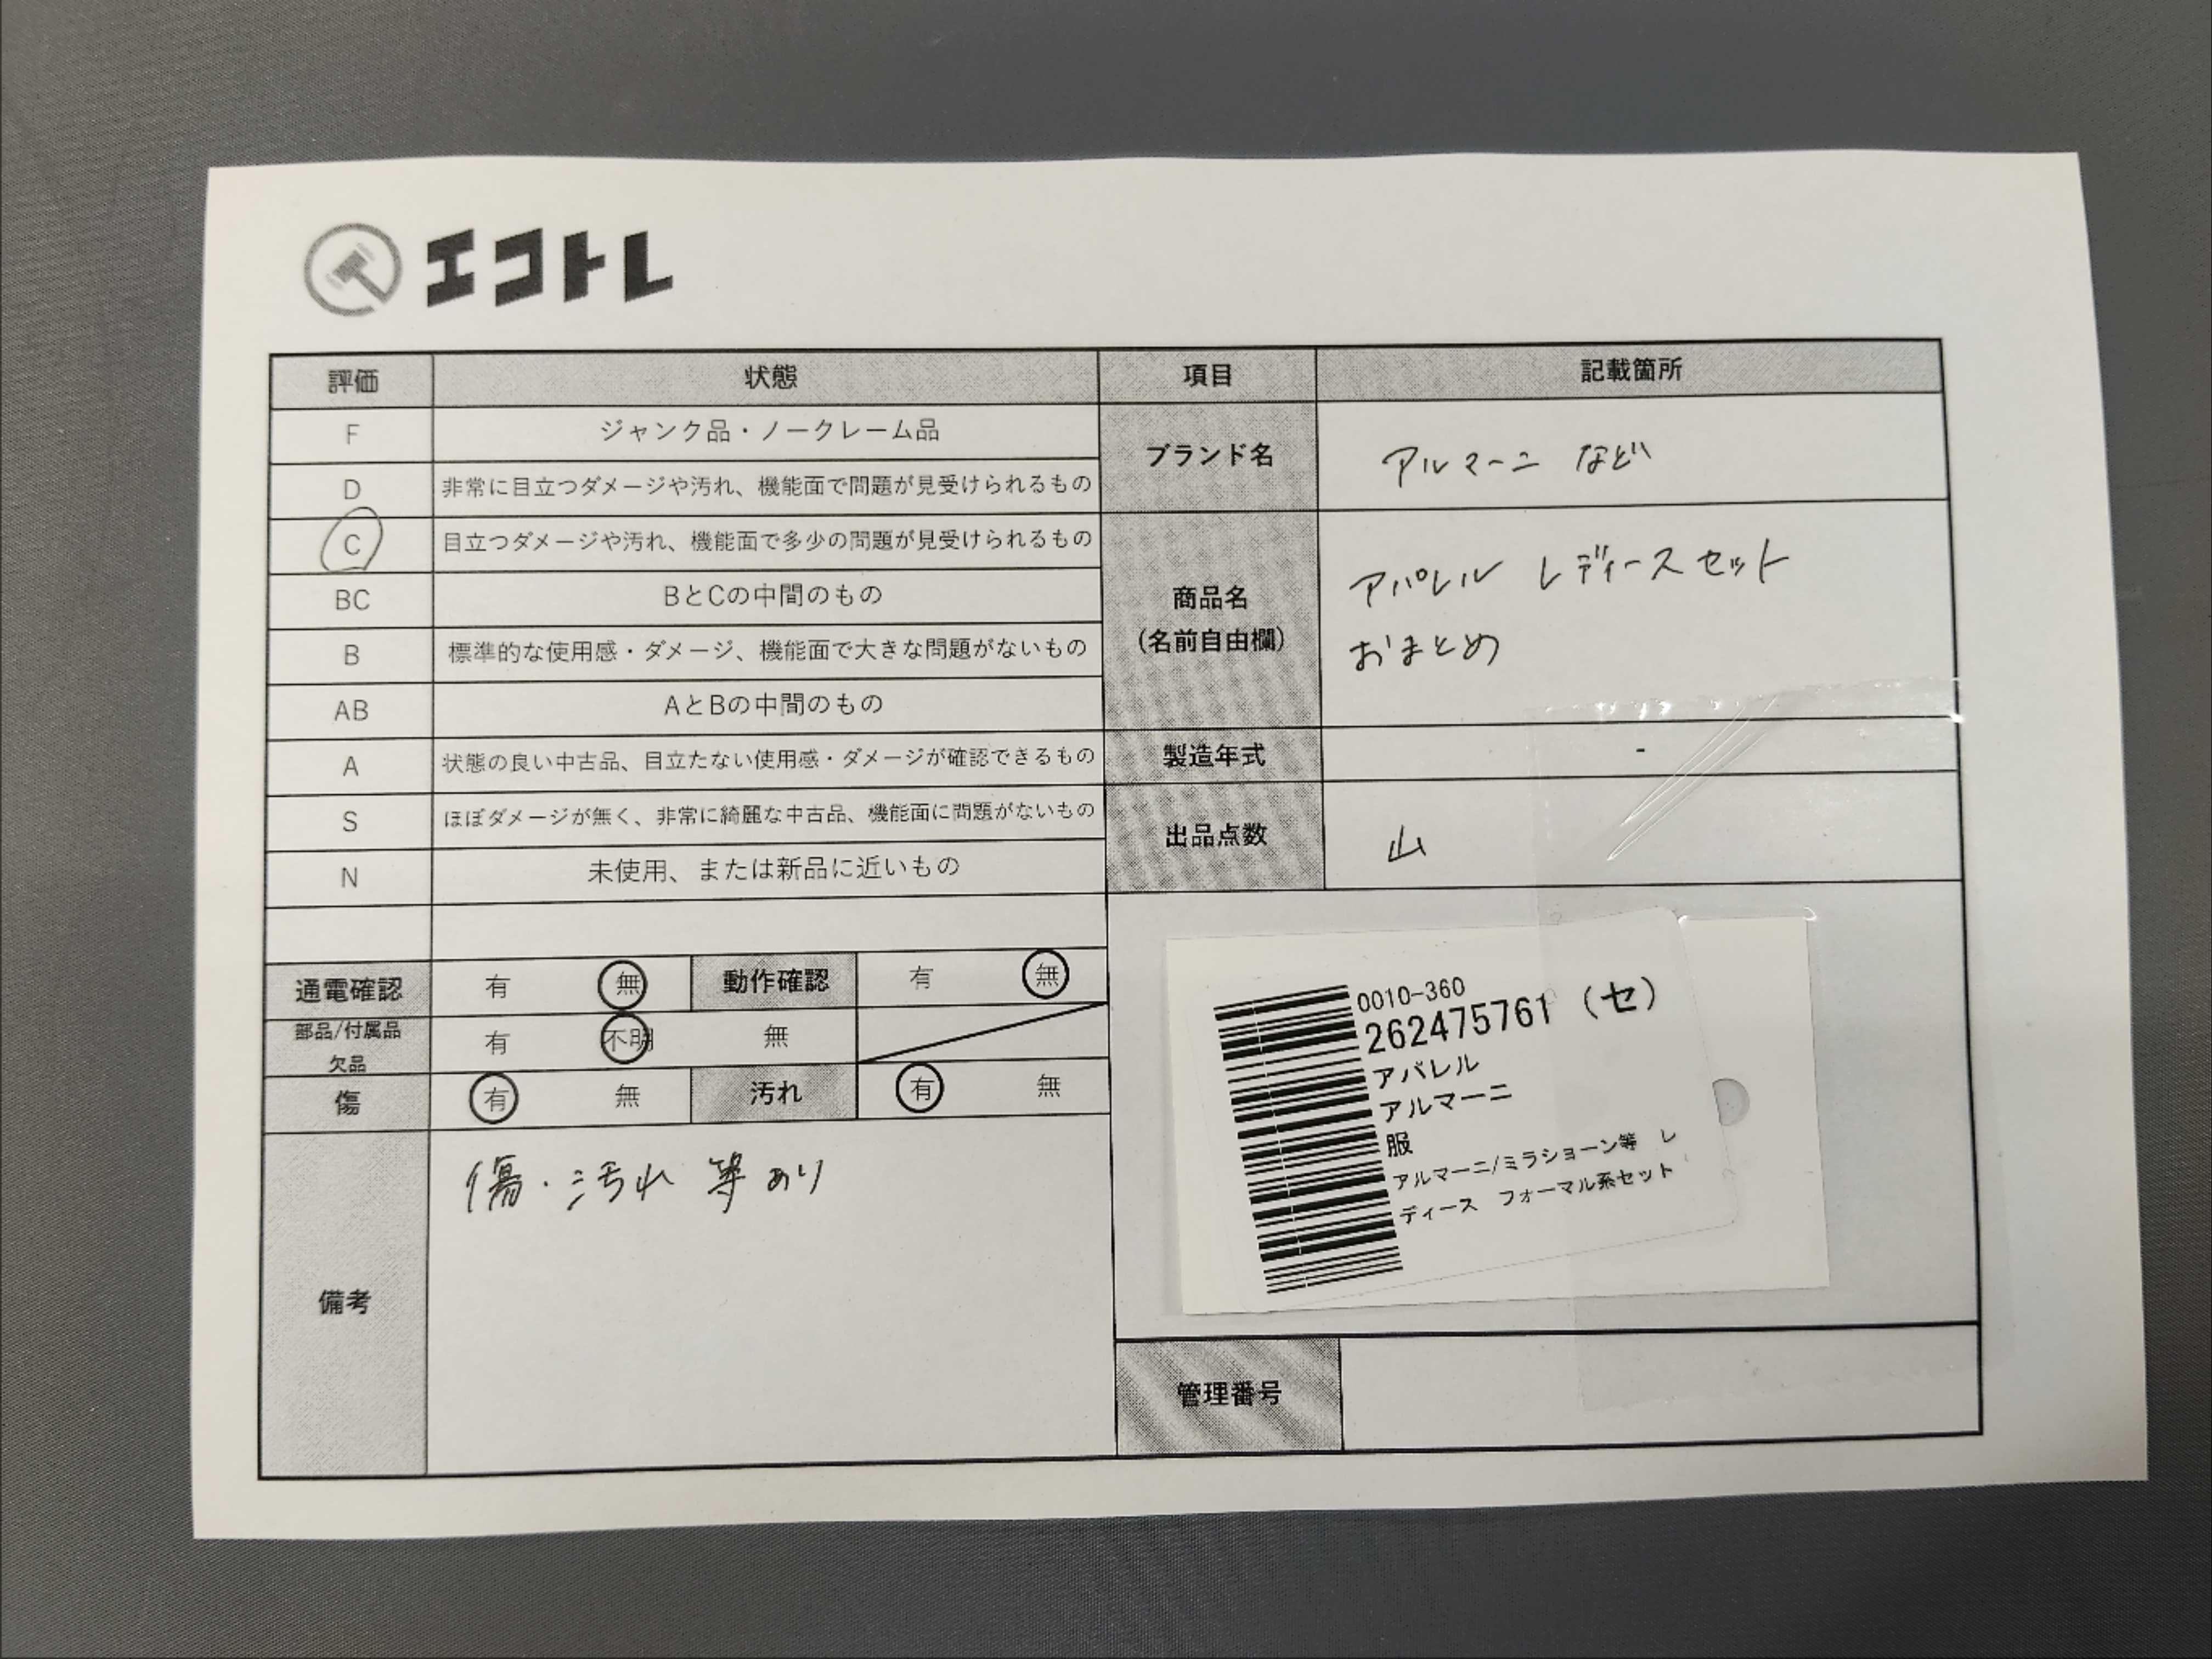 エコトレ
評価 状態 項目 記載箇所
F ジャンク品・ノークレーム品
D 非常に目立つダメージや汚れ、機能面で問題が見受けられるもの
C 目立つダメージや汚れ、機能面で多少の問題が見受けられるもの
BC BとCの中間のもの
B 標準的な使用感・ダメージ、機能面で大きな問題がないもの
AB AとBの中間のもの
A 状態の良い中古品、目立たない使用感・ダメージが確認できるもの
S ほぼダメージが無く、非常に綺麗な中古品、機能面に問題がないもの
N 未使用、または新品に近いもの
ブランド名 アルマーニ など
商品名
(名前自由欄)
アパレル レディースセット
おまとめ
製造年式 -
出品点数 山
通電確認 有 無 動作確認 有 無
部品/付属品
欠品
有 不明 無
傷 有 無 汚れ 有 無
備考
傷・汚れ 等あり
0010-360
262475761 (セ)
アパレル
アルマーニ
服
アルマーニ/ミラショーン等 レ
ディース フォーマル系セット
管理番号